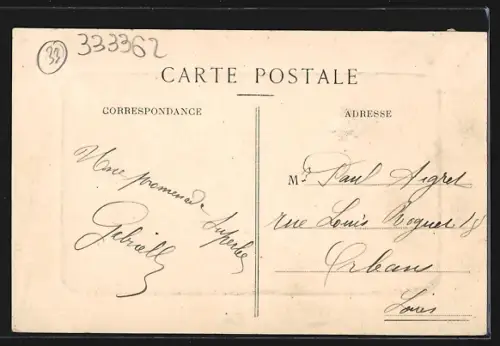 33
333362
CARTE POSTALE
CORRESPONDANCE
ADRESSE
Une promenade superbe
Gabrielle
Mr Paul Aigret
rue Louis Roguet 18
Orléans
Loiret